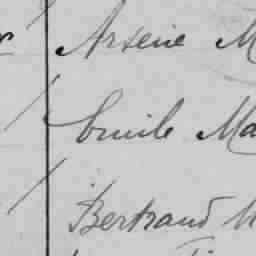 Arsene M
Emile Ma
Bertrand M